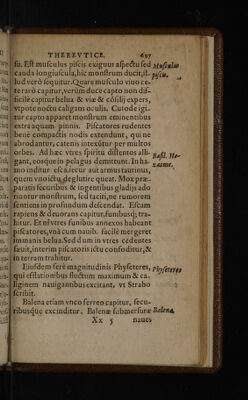 THEREVTICE. 697
sū. Est musculus piscis exiguus aspectu sed
cauda longiuscula, hic monstrum ducit, il-
lud verò sequitur. Quare musculo viuo ce-
te rarò capitur, verùm duce capto non dif-
ficile capitur belua & viæ & cōsilij expers,
vtpote noctu caligans oculis. Cutode igi-
tur capto apparet monstrum eminentibus
extra aquam pinnis. Piscatores rudentes
benè compactis nodis extendunt, qui ne
abrodantur, catenis intexūtur per multos
orbes. Ad hæc vtres spiritu distentos alli-
gant, eosque in pelagus demittunt. In ha-
mo inditur esca, iecur aut armus taurinus,
quem vno ictu deglutire queat. Mox præ-
paratis securibus & ingentibus gladijs ado
riuntur monstrum, sed taciti, ne rumorem
sentiens in profundum descendat. Escam
rapiens & deuorans capitur, funibusq́; tra-
hitur. Et ni vtres funibus annexos habeant
piscatores, vnà cum nauib. facilè mergeret
immanis belua. Sed dum in vtres cedentes
sæuit, interim piscatoris ictu confoditur, &
in terram trahitur.
Eiusdem ferè magnitudinis Physeteres,
qui efflationibus fluctum maximum & ca-
liginem nauigantibus excitant, vt Strabo
scribit.
Balena etiam vnco ferreo capitur, secu-
ribusque exscinditur. Balenæ submersuræ
Xx 5 naues
Musculus
piscis.
Basil. He-
xaame.
Physeteres
Balena.